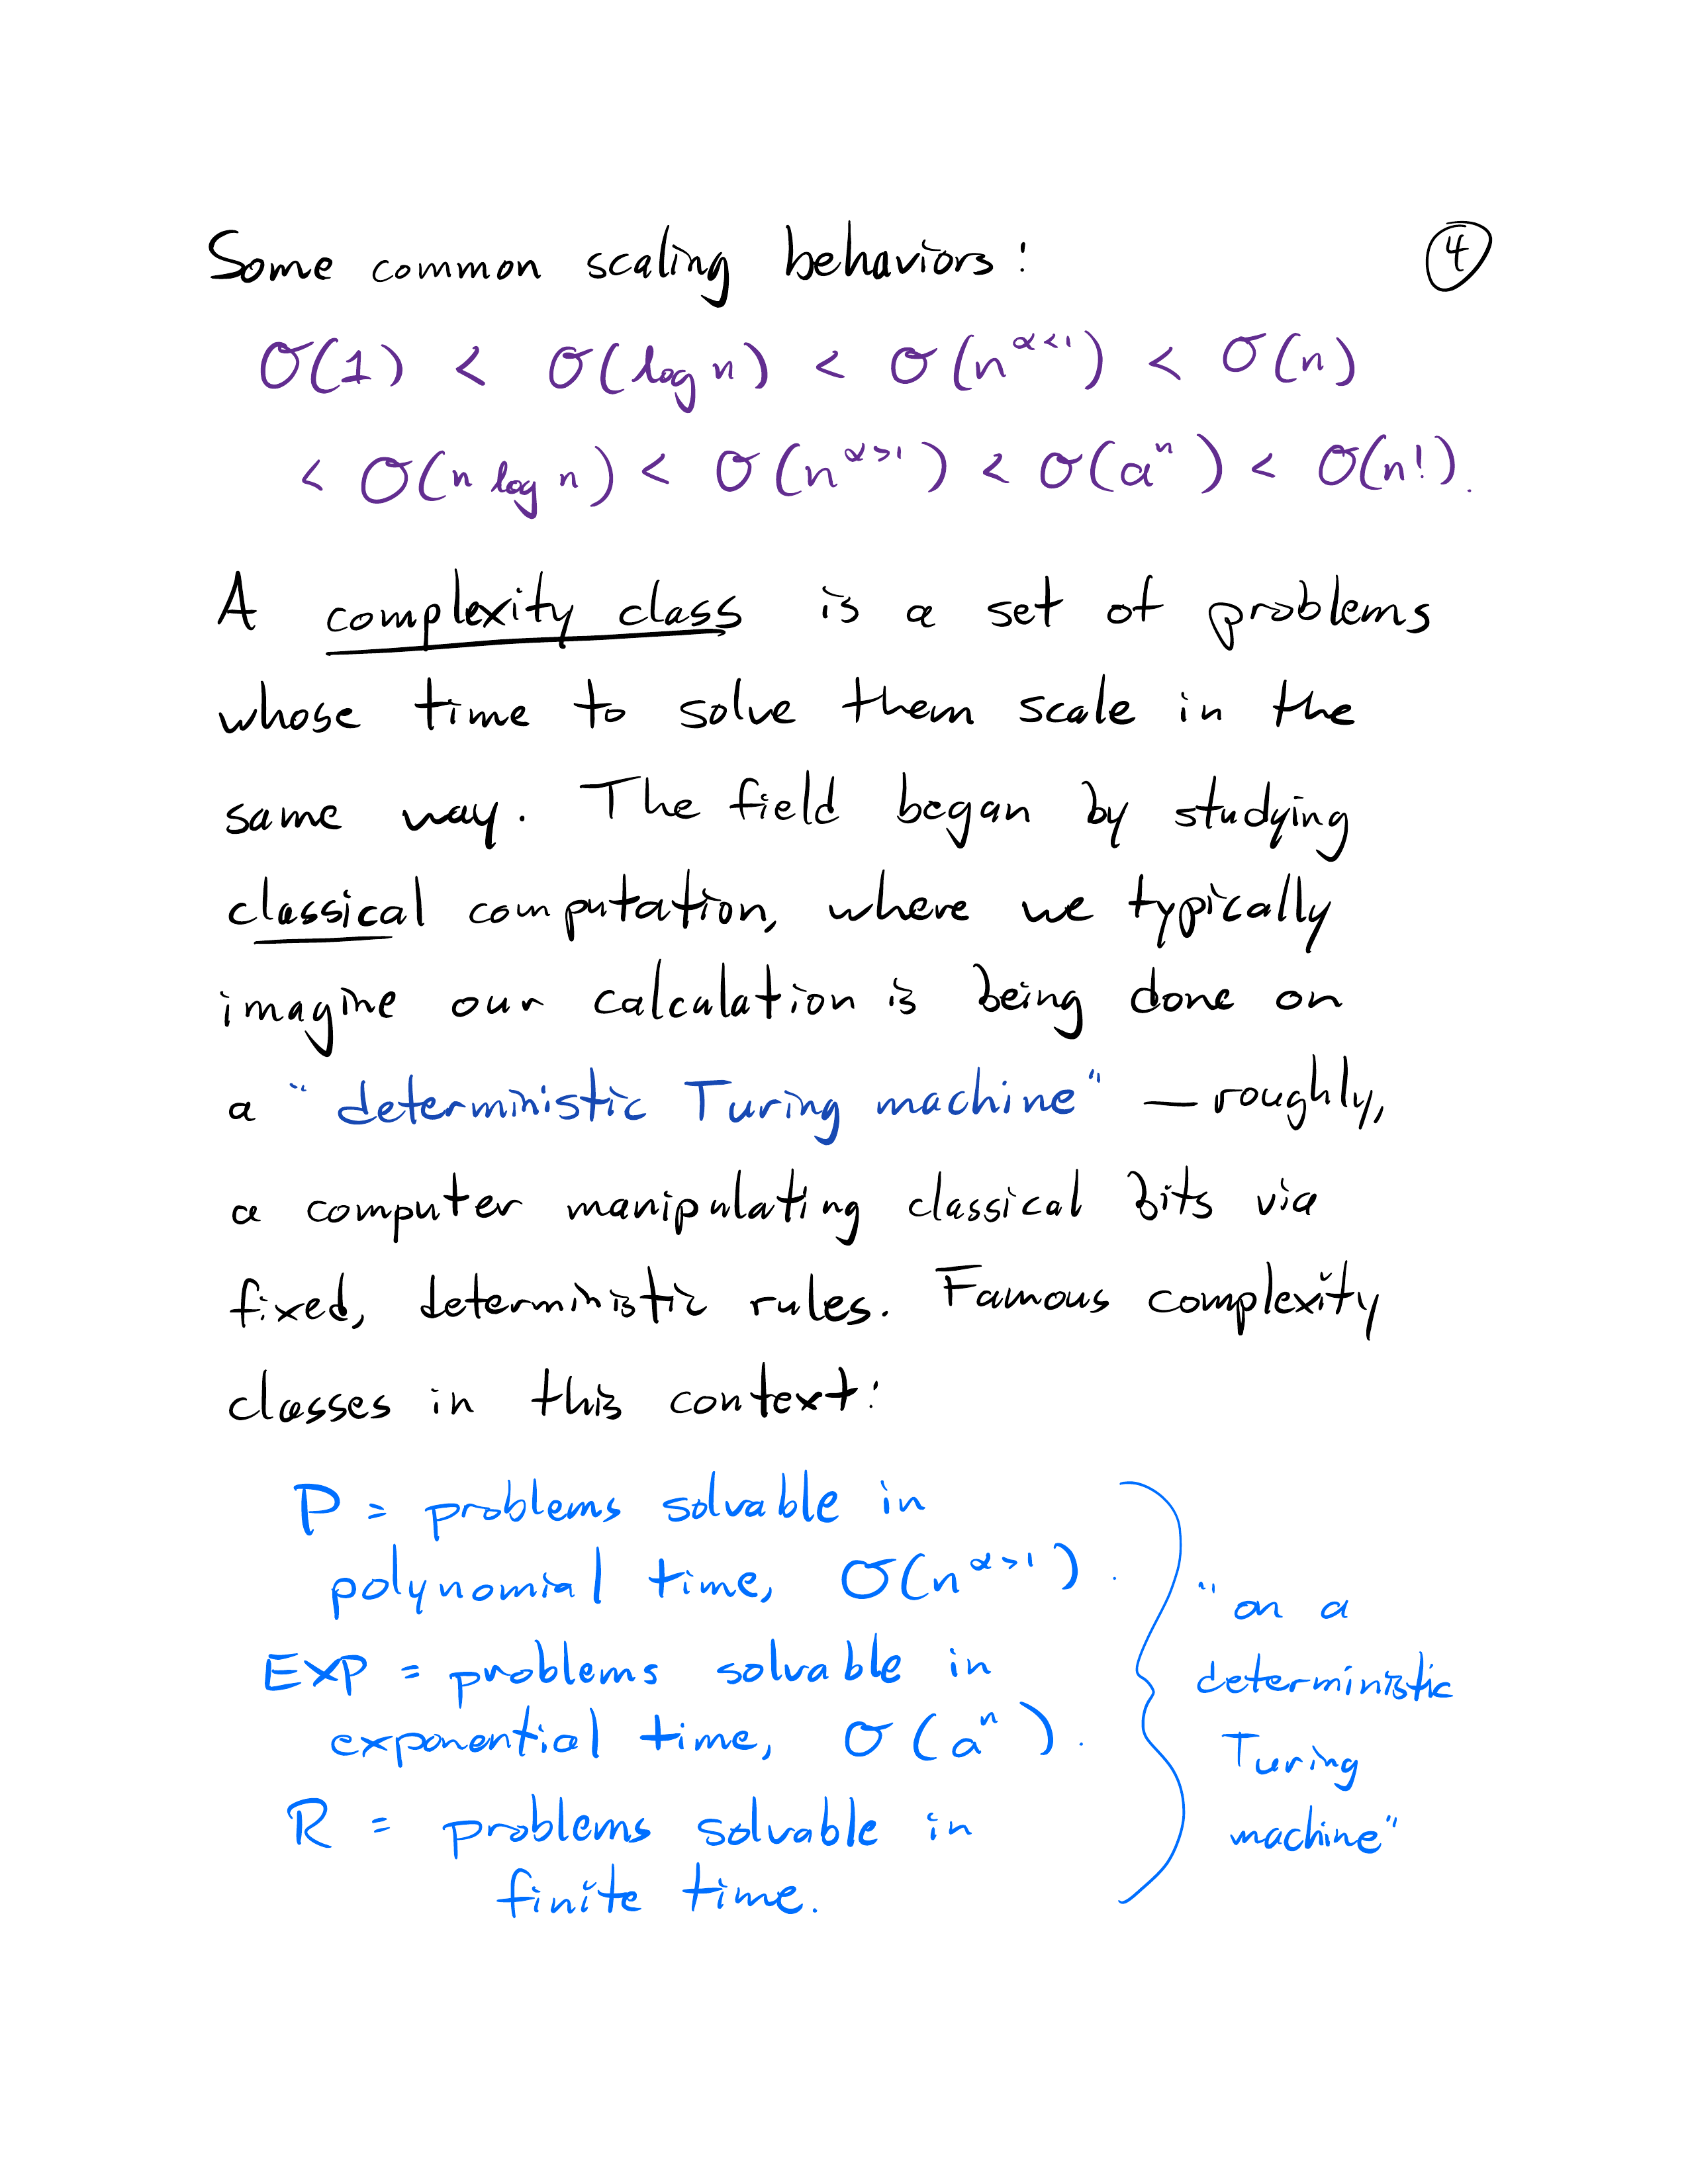 Some common scaling behaviors: ④
O(1) < O(log n) < O(n^{α<1}) < O(n)
< O(n log n) < O(n^{α>1}) < O(a^n) < O(n!).
A complexity class is a set of problems
whose time to solve them scale in the
same way. The field began by studying
classical computation, where we typically
imagine our calculation is being done on
a "deterministic Turing machine" — roughly,
a computer manipulating classical bits via
fixed, deterministic rules. Famous complexity
classes in this context:
P = problems solvable in
polynomial time, O(n^{α>1}).
EXP = problems solvable in
exponential time, O(a^n).
R = problems solvable in
finite time.
"on a
deterministic
Turing
machine"